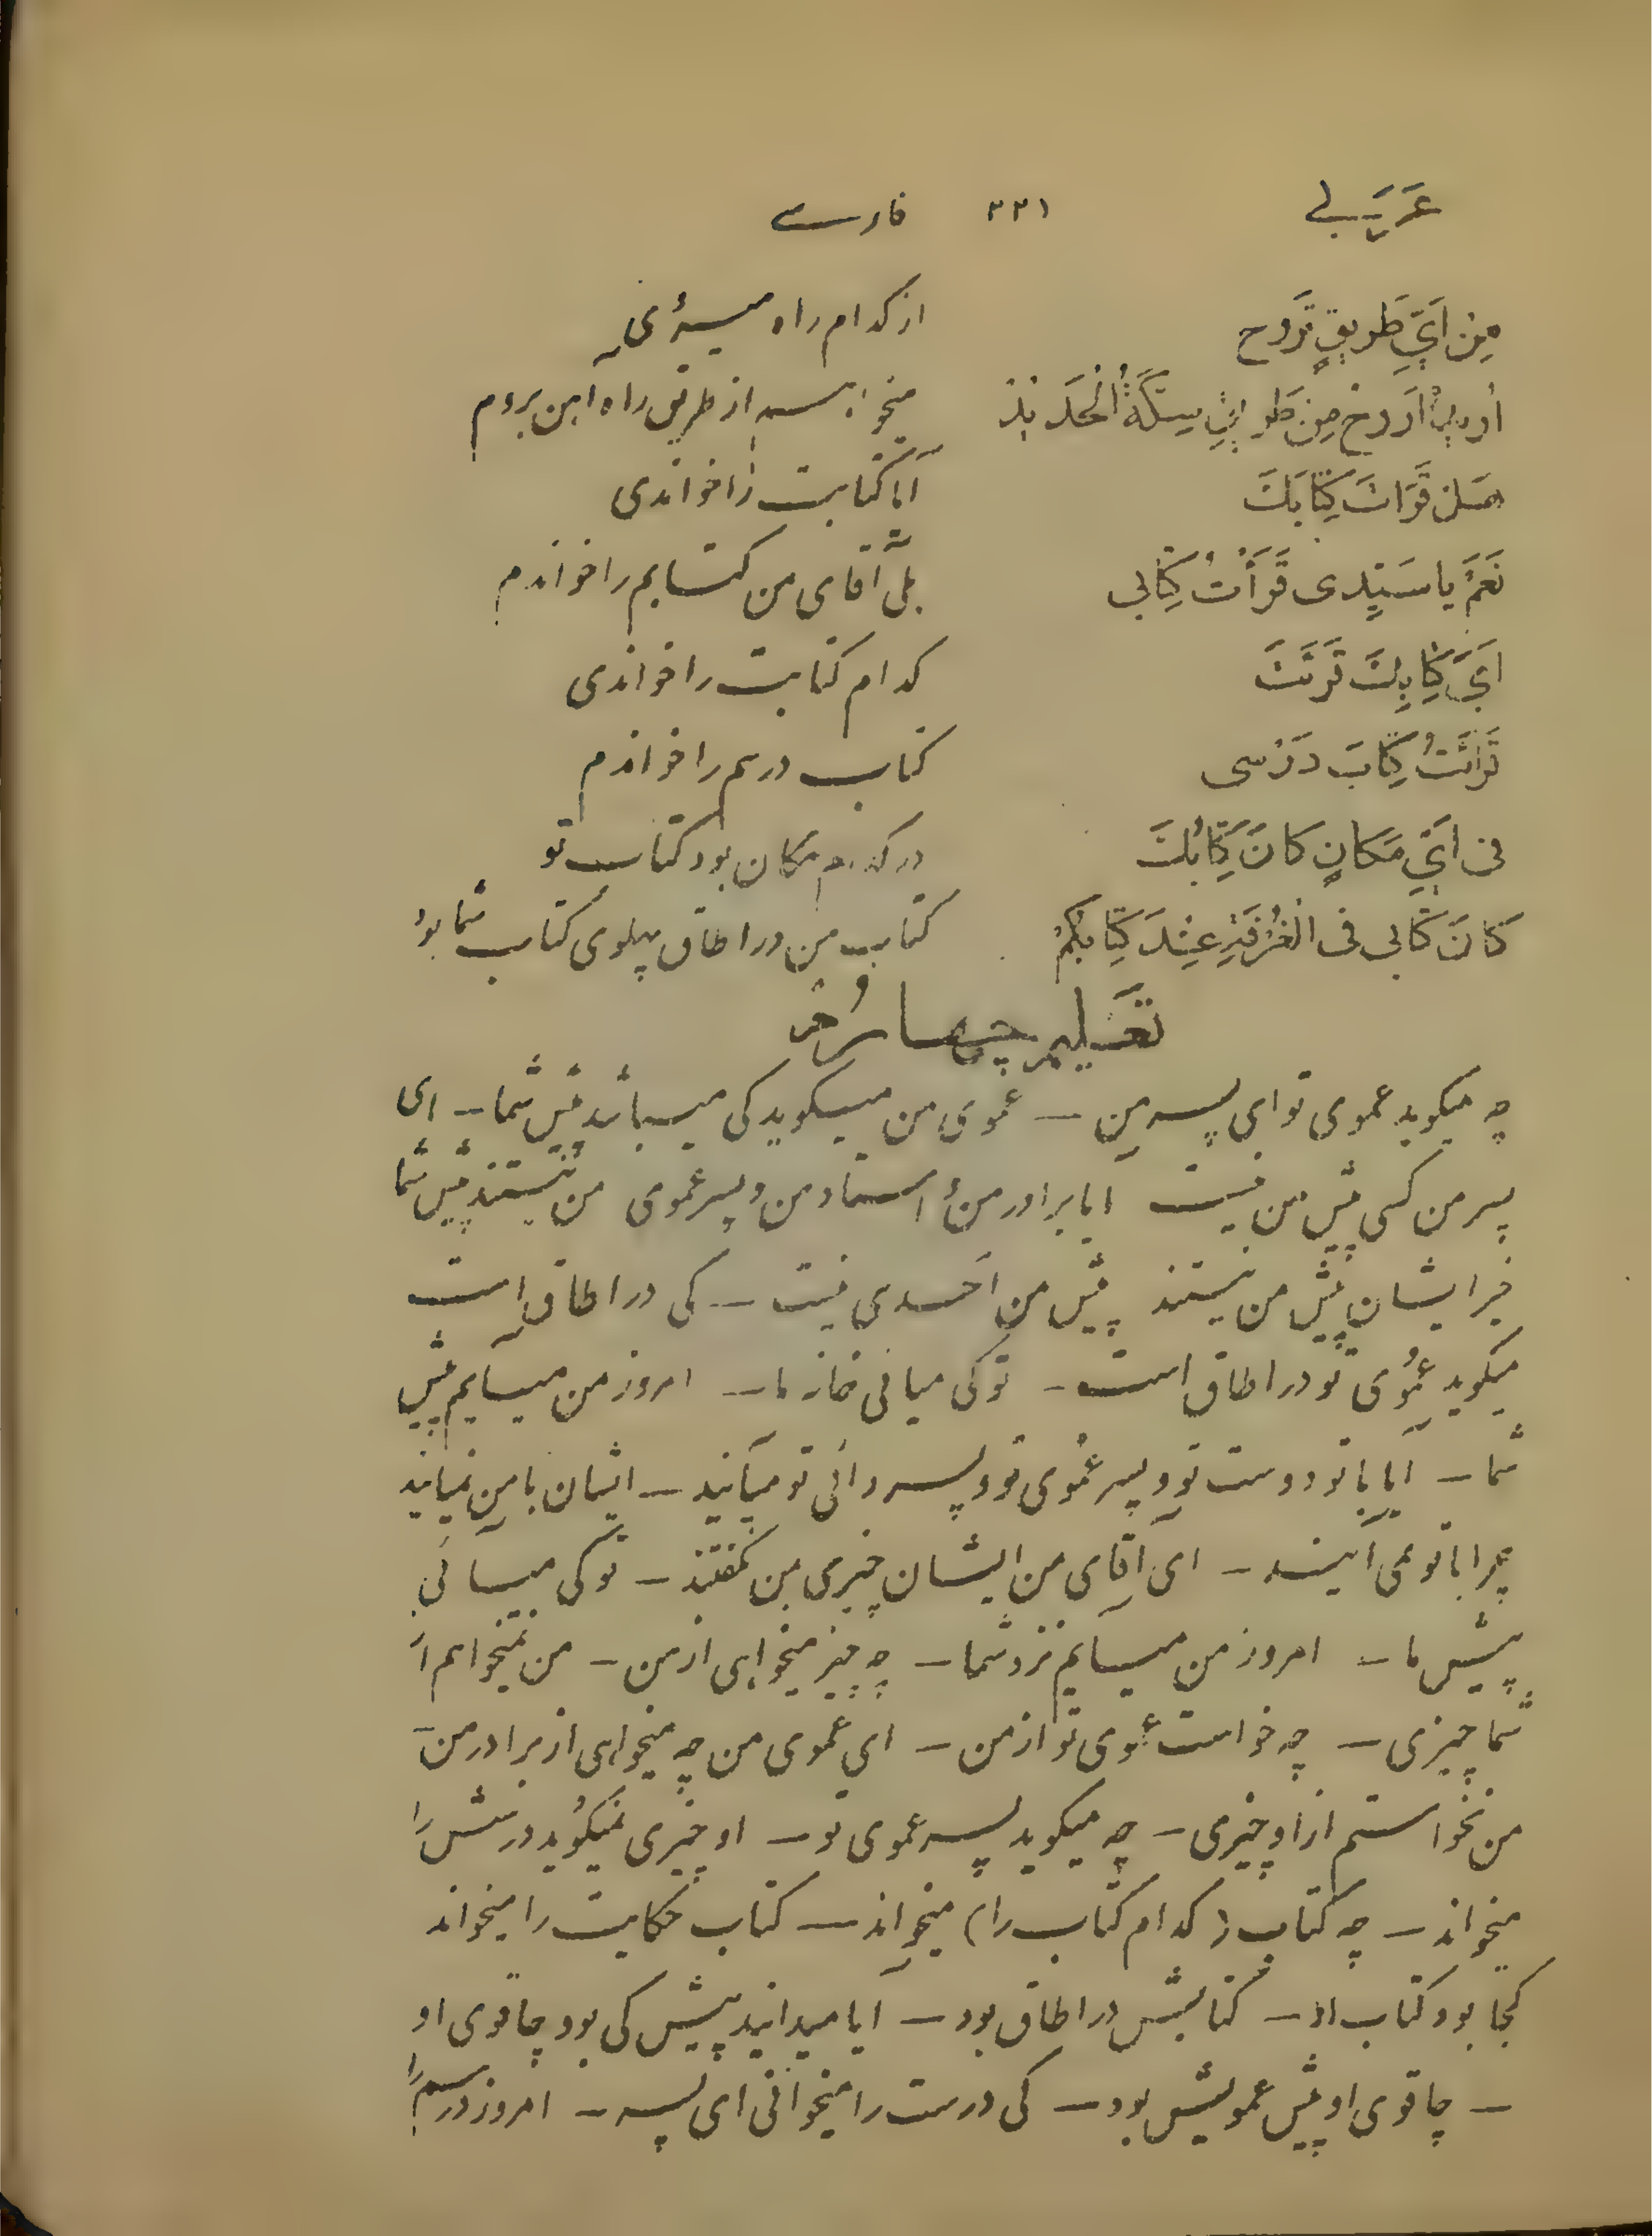 عَرَبی ۲۲۱ فارسی
مِنْ اَیِّ طَریقٍ تَرُوح از کدام راه میروی
اُریدُ اَرُوحُ مِنْ طَریقِ سِکَّةِ الْحَدیدِ میخواهم از طریق راه اهن بروم
هَلْ قَرَاتَ کِتابَکَ آیا کتابت را خواندی
نَعَمْ یا سَیِّدی قَرَأتُ کِتابی بلی آقای من کتابم را خواندم
اَیَّ کِتابِکَ قَرَئتَ کدام کتابت را خواندی
قَرَائتُ کِتابَ دَرْسی کتاب درسم را خواندم
فی اَیِّ مَکانٍ کانَ کِتابُکَ در کدام مکان بود کتاب تو
کانَ کتابی فی الْغُرْفَةِ عِنْدَ کِتابِکُمْ کتاب من در اطاق پهلوی کتاب شما بود
تعلیم چهارم
چه میگوید عموی تو ای پسر من – عموی من میگوید کی میباشد پیش شما – ای
پسر من کسی پیش من نیست ایا برادر من و استاد من و پسر عموی من نیستند پیش شما
خیر ایشان پیش من نیستند پیش من احدی نیست – کی در اطاق است
میگوید عموی تو در اطاق است – تو کی میائی خانه ما – امروز من میآیم پیش
شما – آیا با تو دوست تو و پسر عموی تو و پسر دائی تو میآیند – ایشان با من نمیایند
چرا با تو نمی آیند – ای آقای من ایشان چیزی بمن نگفتند – تو کی میائی
پیش ما – امروز من میایم نزد شما – چه چیز میخواهی از من – من نمیخواهم از
شما چیزی – چه خواست عموی تو از من – ای عموی من چه میخواهی از برادر من –
من نخواستم از او چیزی – چه میگوید پسر عموی تو – او چیزی نمیگوید درسش را
میخواند – چه کتاب ( کدام کتاب را ) میخواند – کتاب حکایت را میخواند
کجا بود کتاب او – کتابش در اطاق بود – آیا میدانید پیش کی بود چاقوی او
– چاقوی او پیش عمویش بود – کی درست را میخوانی ای پسر – امروز درسم را